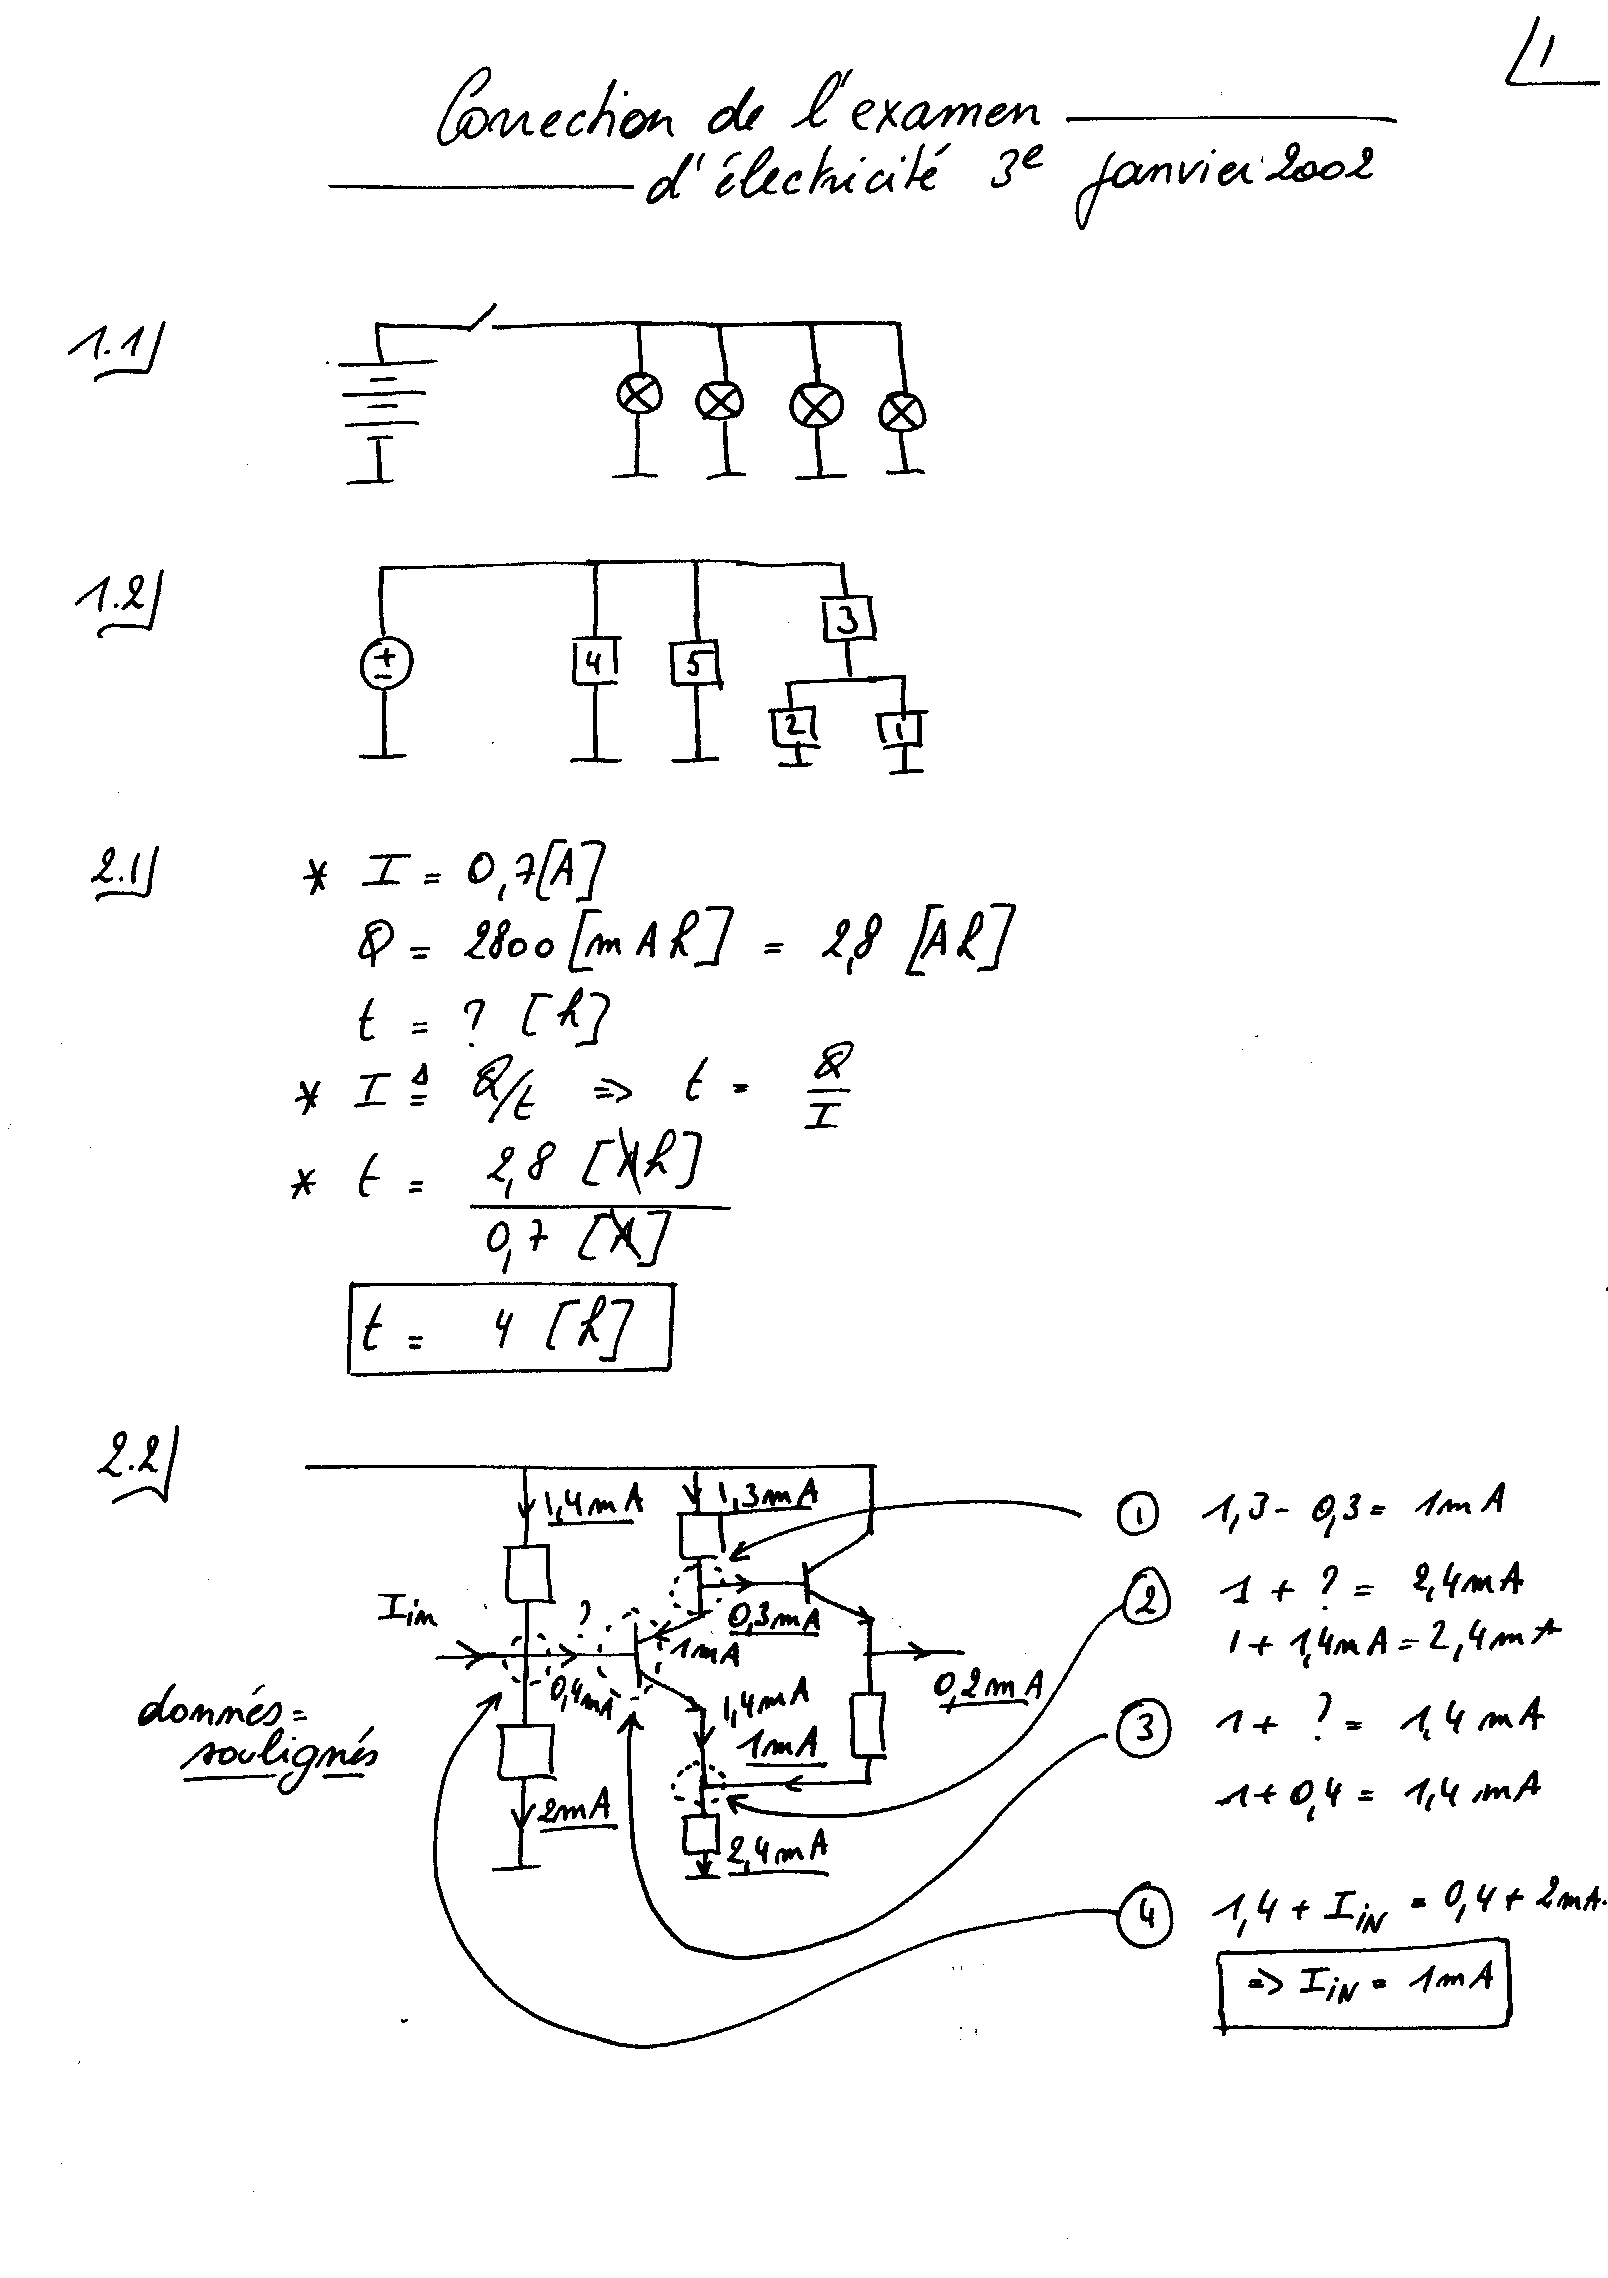 1
Correction de l'examen
d'électricité 3e janvier 2002
1.1/
1.2/
3
4
5
2
1
2.1/
* I = 0,7 [A]
Q = 2800 [mAh] = 2,8 [Ah]
t = ? [h]
* I ≜ Q/t => t = Q/I
* t = 2,8 [Ah]
0,7 [A]
t = 4 [h]
2.2/
1,4mA
1,3mA
Iin
?
0,3mA
1mA
0,4mA
1,4mA
0,2mA
1mA
2mA
2,4mA
donnés =
soulignés
① 1,3 - 0,3 = 1mA
② 1 + ? = 2,4mA
1 + 1,4mA = 2,4mA
③ 1 + ? = 1,4 mA
1 + 0,4 = 1,4 mA
④ 1,4 + IiN = 0,4 + 2mA.
=> IiN = 1mA